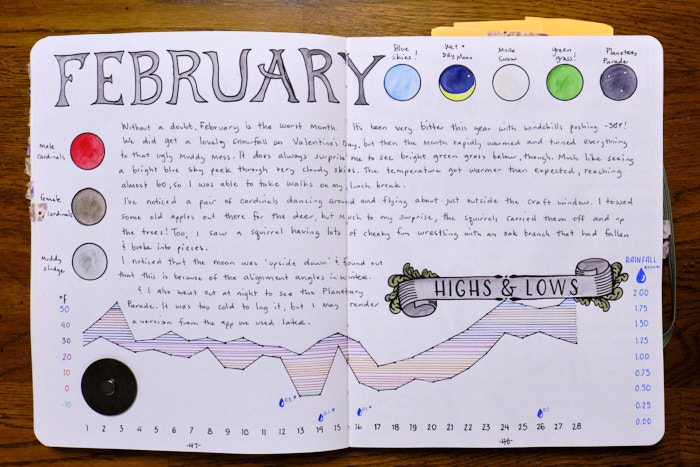 FEBRUARY
Blue Skies!
Wet + Day Moon
More Snow
green grass!
Planetary Parade
male cardinals
female cardinals
Muddy sludge
Without a doubt, February is the worst month. It's been very bitter this year with windchills pushing -30F!
We did get a lovely snowfall on Valentine's Day, but then the month rapidly warmed and turned everything
to that ugly muddy mess. It does always surprise me to see bright green grass below, though. Much like seeing
a bright blue sky peek through very cloudy skies. The temperature got warmer than expected, reaching
almost 60, so I was able to take walks on my lunch break.
I've noticed a pair of cardinals dancing around and flying about just outside the craft window. I tossed
some old apples out there for the deer, but much to my surprise, the squirrels carried them off and up
the trees! Too, I saw a squirrel having lots of cheeky fun wrestling with an oak branch that had fallen
& broke into pieces.
I noticed that the moon was 'upside down' & found out
that this is because of the alignment angles in winter.
& I also went out at night to see the Planetary
Parade. It was too cold to log it, but I may render
a version from the app we used later.
HIGHS & LOWS
RAINFALL
°F
50
40
30
20
10
0
-10
2.00
1.75
1.50
1.25
1.00
0.75
0.50
0.25
0.00
1 2 3 4 5 6 7 8 9 10 11 12 13 14 15 16 17 18 19 20 21 22 23 24 25 26 27 28
-47-
-48-